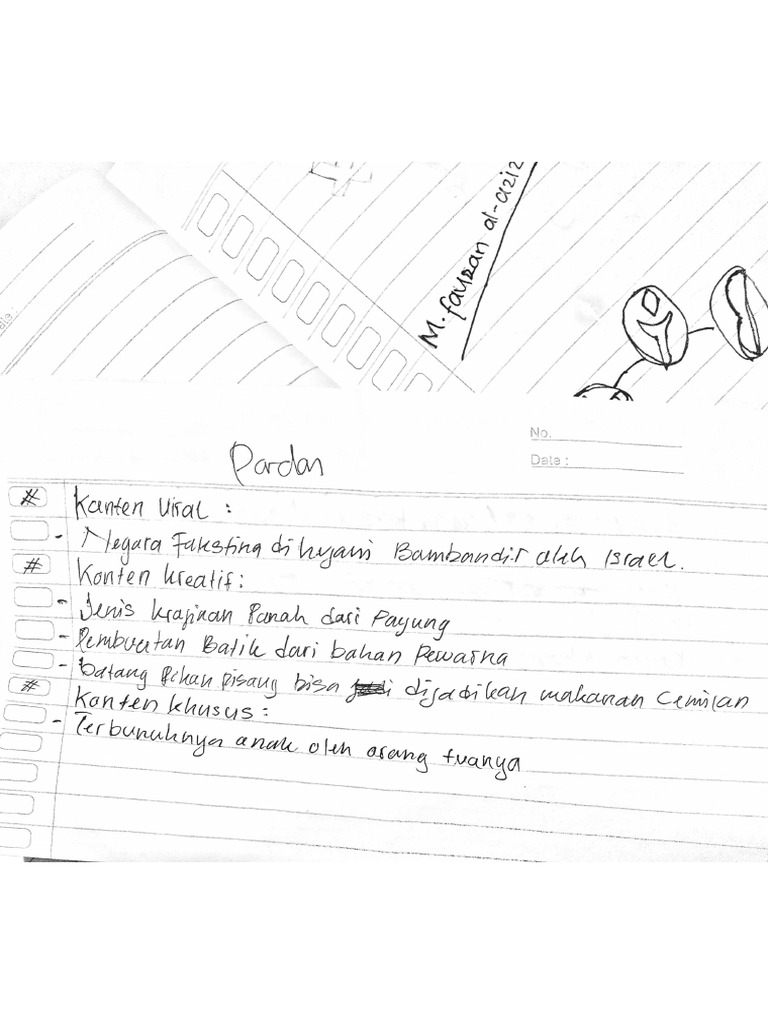 M. fauzan al-aziz
No.
Date :
Pardan
# Kanten Viral :
- Negara Fakestina di hujani Bambandir oleh Israel.
# Konten kreatif :
- Jenis krajinan Panah dari Payung
- Pembuatan Batik dari bahan Pewarna
- batang Pohan pisang bisa dijadikan makanan Cemilan
# Konten khusus :
- Terbunuhnya anak oleh orang tuanya